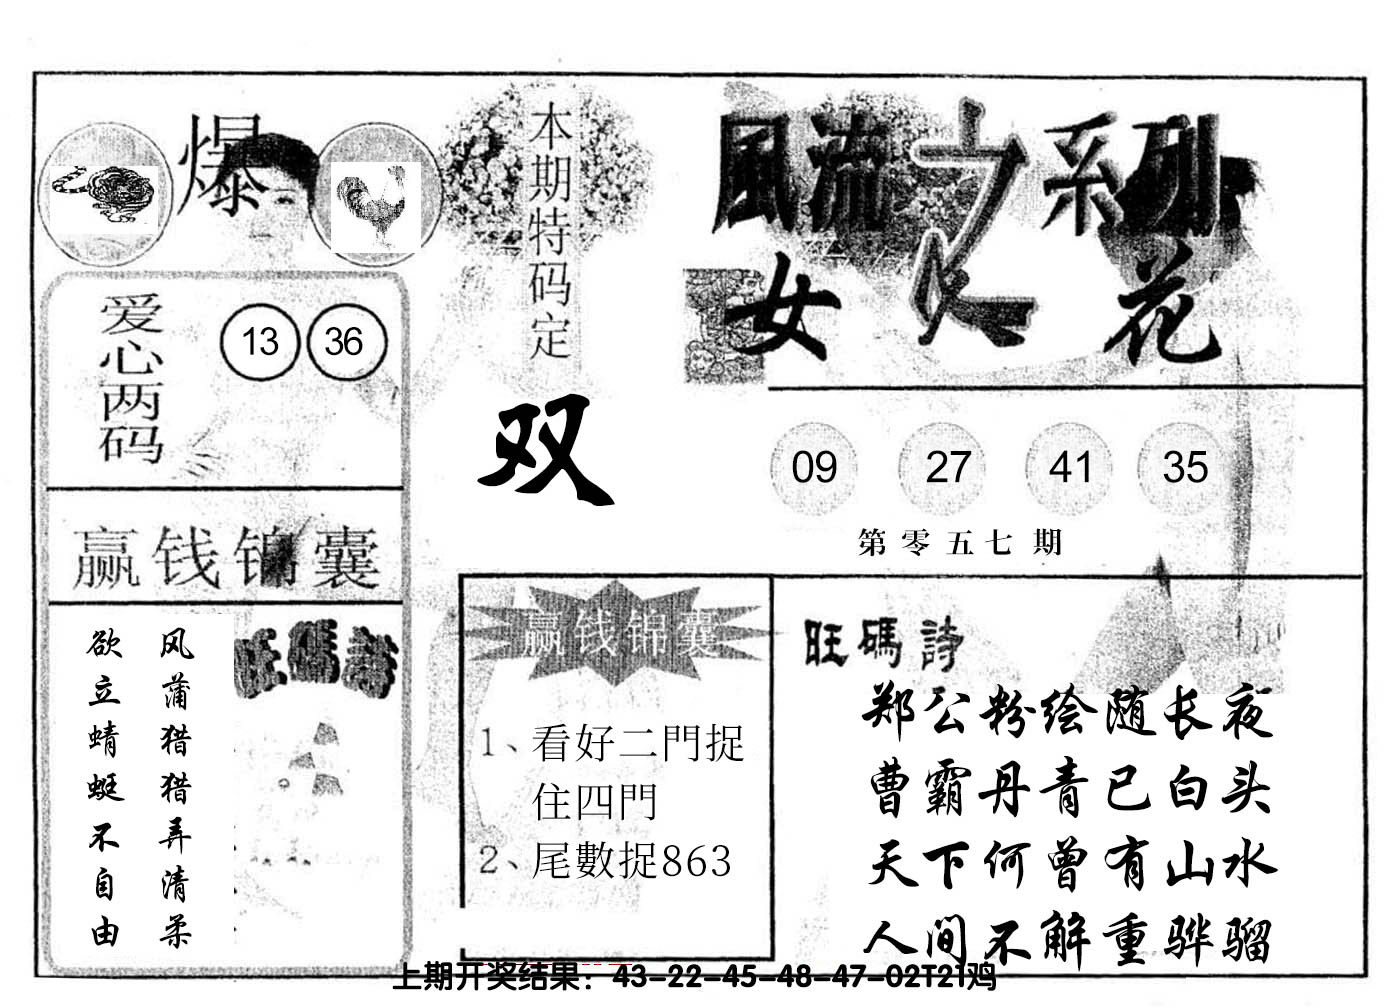 爆
本期特码定
双
風流之系列
女人花
爱心两码
13 36
09 27 41 35
第零五七期
赢钱锦囊
风蒲猎猎弄清柔
欲立蜻蜓不自由
旺碼詩
赢钱锦囊
1、看好二門捉
住四門
2、尾數捉863
旺碼詩
郑公粉绘随长夜
曹霸丹青已白头
天下何曾有山水
人间不解重骅骝
上期开奖结果：43-22-45-48-47-02T21鸡